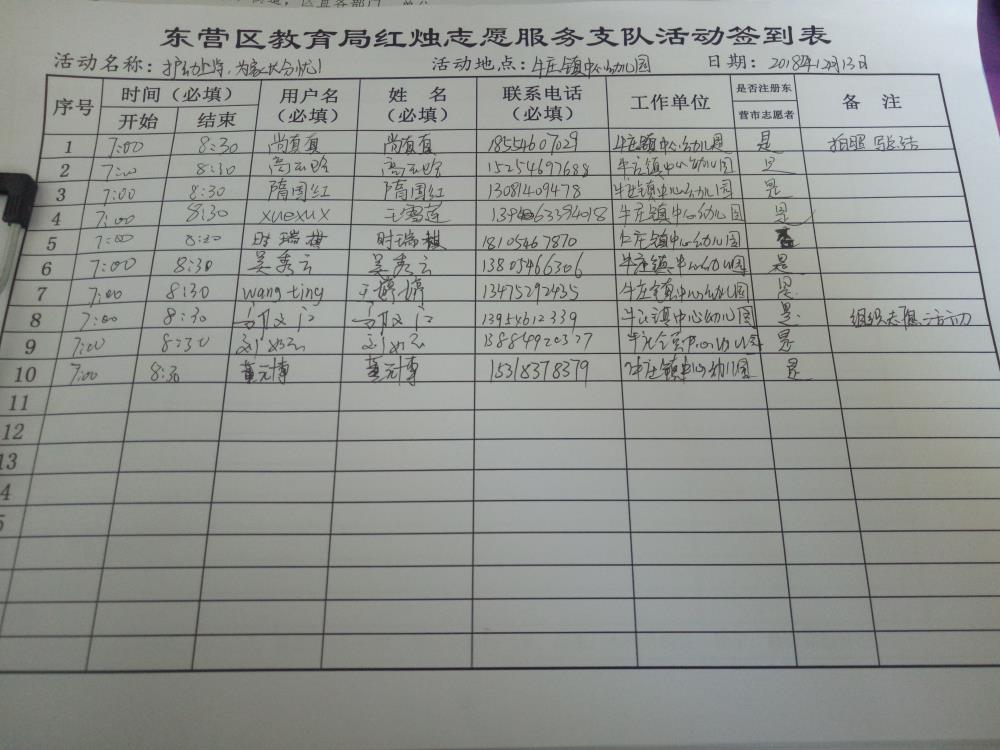 东营区教育局红烛志愿服务支队活动签到表
活动名称: 护幼上岗,为家长分忧! 活动地点: 牛庄镇中心幼儿园 日期: 2018年12月13日
序号 时间(必填) 用户名(必填) 姓名(必填) 联系电话(必填) 工作单位 是否注册东营市志愿者 备注
开始 结束
1 7:00 8:30 尚真真 尚真真 18554607029 牛庄镇中心幼儿园 是 拍照 总结
2 7:00 8:30 高云哈 高云哈 15254697688 牛庄镇中心幼儿园 是
3 7:00 8:30 隋国红 隋国红 13081409478 牛庄镇中心幼儿园 是
4 7:00 8:30 xuexux 王雪莲 牛庄镇中心幼儿园 是
5 7:00 8:30 时瑞祺 时瑞祺 18105467870 牛庄镇中心幼儿园
6 7:00 8:30 吴秀云 吴秀云 13805466306 牛庄镇中心幼儿园 是
7 7:00 8:30 wangting 王婷婷 13475292435 牛庄镇中心幼儿园 是
8 7:00 8:30 13954612339 牛庄镇中心幼儿园 是 组织志愿活动
9 7:00 8:30 13884920327 牛庄镇中心幼儿园 是
10 7:00 8:30 董元博 董元博 15318378379 牛庄镇中心幼儿园 是
11
12
13
4
5